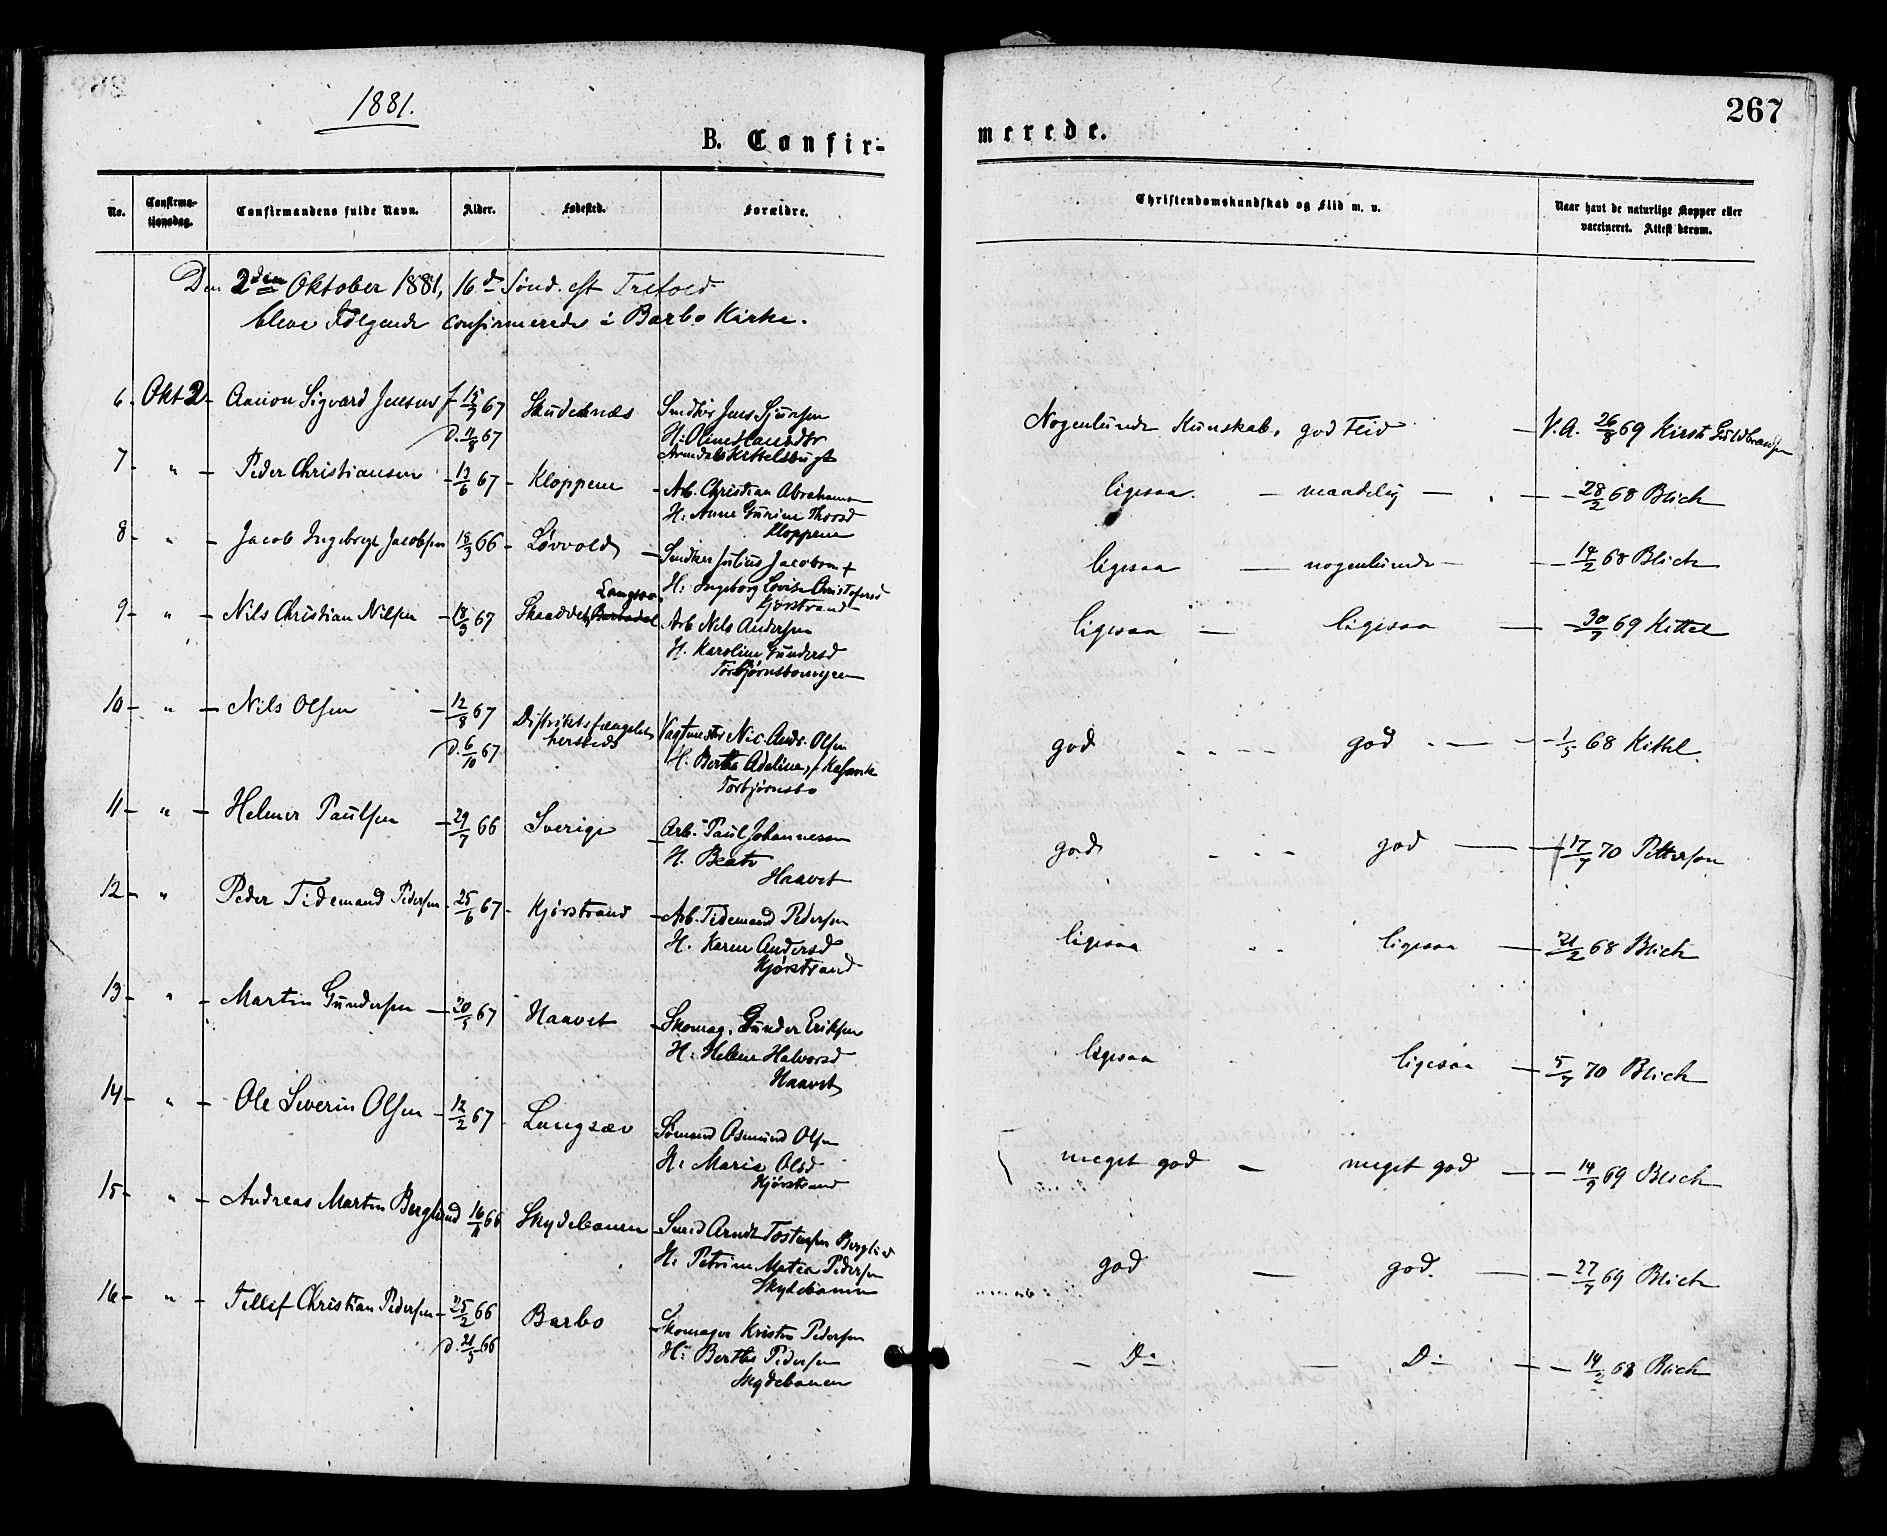 1881.
267
B. Confir-
merede.
No.
Confirma-
tionsdag.
Confirmandens fulde Navn.
Alder.
Fødested.
Forældre.
Christendomskundskab og Flid m. v.
Naar havt de naturlige Kopper eller
vaccineret. Attest derom.
Den 2den Oktober 1881, 16d Sønd. eft Trefold
bleve Følgende confirmerede i Barbo Kirke.
6. Okt 2 Sigvard Jensen f 15/7 67 Skudesnæs
d. 11/8 67
Jens
H:
Arendals Kittelsbugt
Nogenlunde Kunskab, god Flid V. A. 26/8 69 Kirst. Guldbrandsen
7 " Peder Christiansen 12/6 67 Kloppene Arb. Christian Abrahamsen
H: Anne Gurine Thorsd
Kloppene
ligesaa maadelig 28/2 68 Blich
8 " Jacob Ingebregt Jacobsen 18/3 66 Løvvold Julius Jacobsen +
H: Ingeborg Lovise Christofersd
Kjørstrand
ligesaa nogenlunde 14/2 68 Blich
Langsæv
9 " Nils Christian Nilsen 18/3 67 Arb Nils Andersen
H. Karoline Gundersd
Torbjørnsbomyren
ligesaa ligesaa 30/7 69 Kittel
10 " Nils Olsen 12/8 67 Distriktsfængslet Vagtmester Nic. Andr. Olsen
d. 6/10 67 hersteds H. Berthe Adeline, f.
Torbjørnsbo
god god 1/5 68 Kittel.
11 " Helmer Paulsen 29/7 66 Sverige Arb. Paul Johannesen
H. Beate
Haavet
god god 17/7 70 Pettersen
12 " Peder Tidemand Pedersen 25/6 67 Kjørstrand Arb. Tidemand Pedersen
H. Karen Andersd
Kjørstrand
ligesaa ligesaa 21/2 68 Blich
13 " Martin Gundersen 20/5 67 Haavet Skomag. Gunder Eriksen
H: Helene Halvorsd
Haavet
ligesaa ligesaa 5/7 70 Blich
14 " Ole Severin Olsen 12/2 67 Langsæv Sømand Osmund Olsen
H: Maria Olsd
Kjørstrand
meget god meget god 14/9 69 Blich
15 " Andreas Martin Berglund 16/11 66 Skydebanen Arndt Tostensen
H: Petrine Matea Pedersen
Skydebanen
god god. 27/7 69 Blich
16 " Tellef Christian Pedersen 25/2 66 Barbo Skomager Kristen Pedersen
d. 21/5 66 H: Berthe Pedersen
Skydebanen
Do Do 14/2 68 Blich